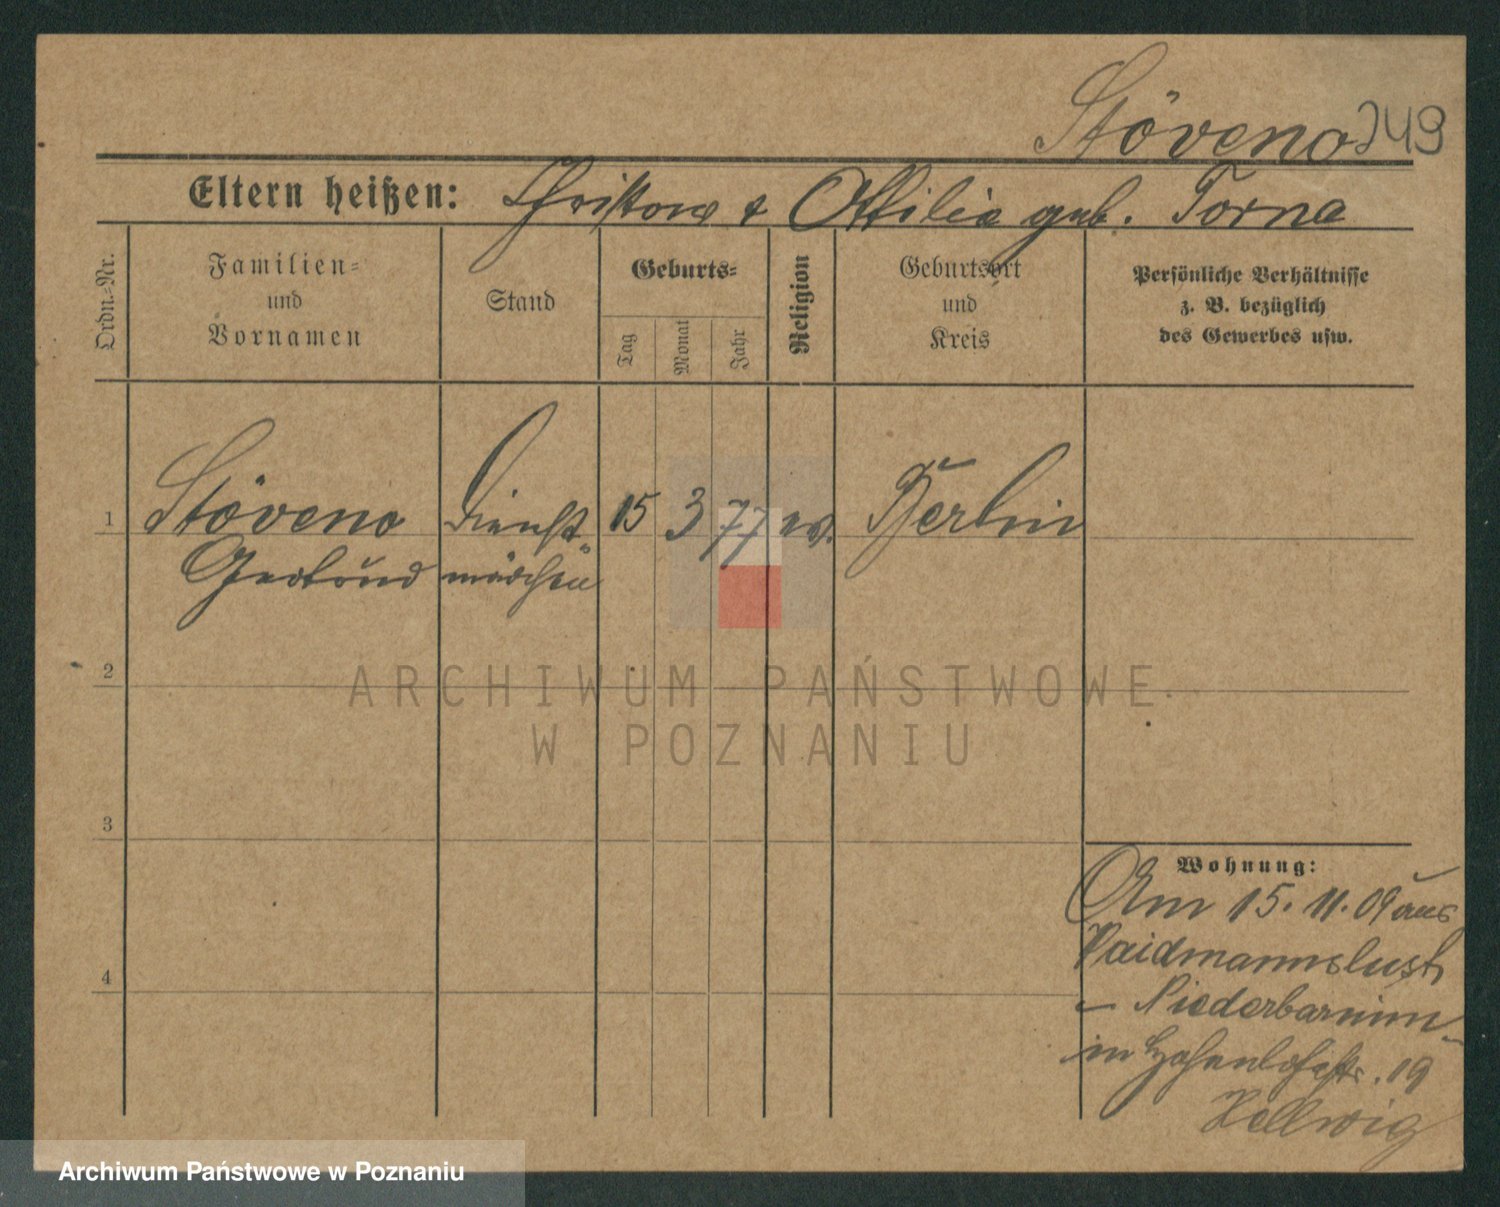 Stöveno 249
Eltern heißen: & Ottilie geb. Torna
Ordn.-Nr.
Familien-
und
Vornamen
Stand
Geburts-
Tag
Monat
Jahr
Religion
Geburtsort
und
Kreis
Persönliche Verhältnisse
z. B. bezüglich
des Gewerbes usw.
1 Stöveno Dienst- 15 3 77 ev. Berlin
Gertrud mädchen
2
ARCHIWUM PAŃSTWOWE
W POZNANIU
3
Wohnung:
Am 15. 11. 09 aus
Waidmannslust
- Niederbarnim -
in Hohenlohestr. 19
Hellwig
4
Archiwum Państwowe w Poznaniu